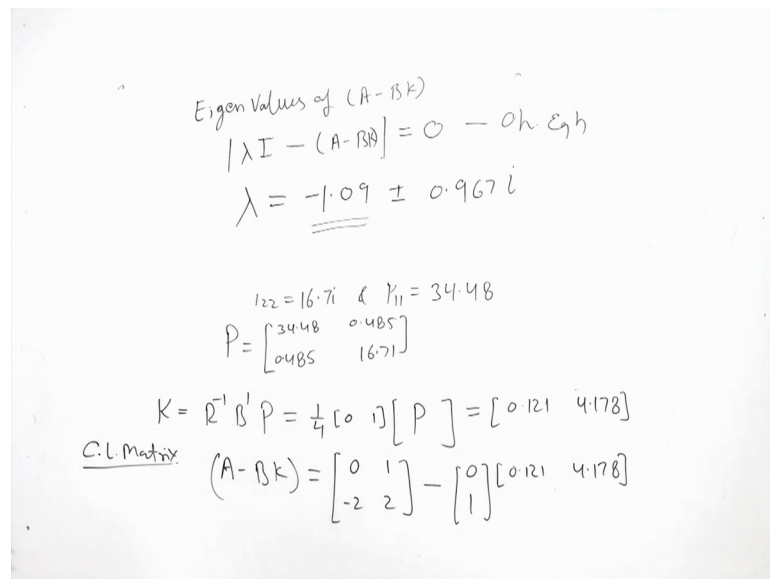 Eigen Values of (A-BK)
|λI - (A-BK)| = 0 - Ch. Eqn
λ = -1.09 ± 0.967 i
122 = 16.71 & P11 = 34.48
P = [34.48 0.485
0.485 16.71]
K = R⁻¹ B' P = 1/4 [0 1] [P] = [0.121 4.178]
C.L. Matrix
(A-BK) = [0 1
-2 2] - [0
1] [0.121 4.178]